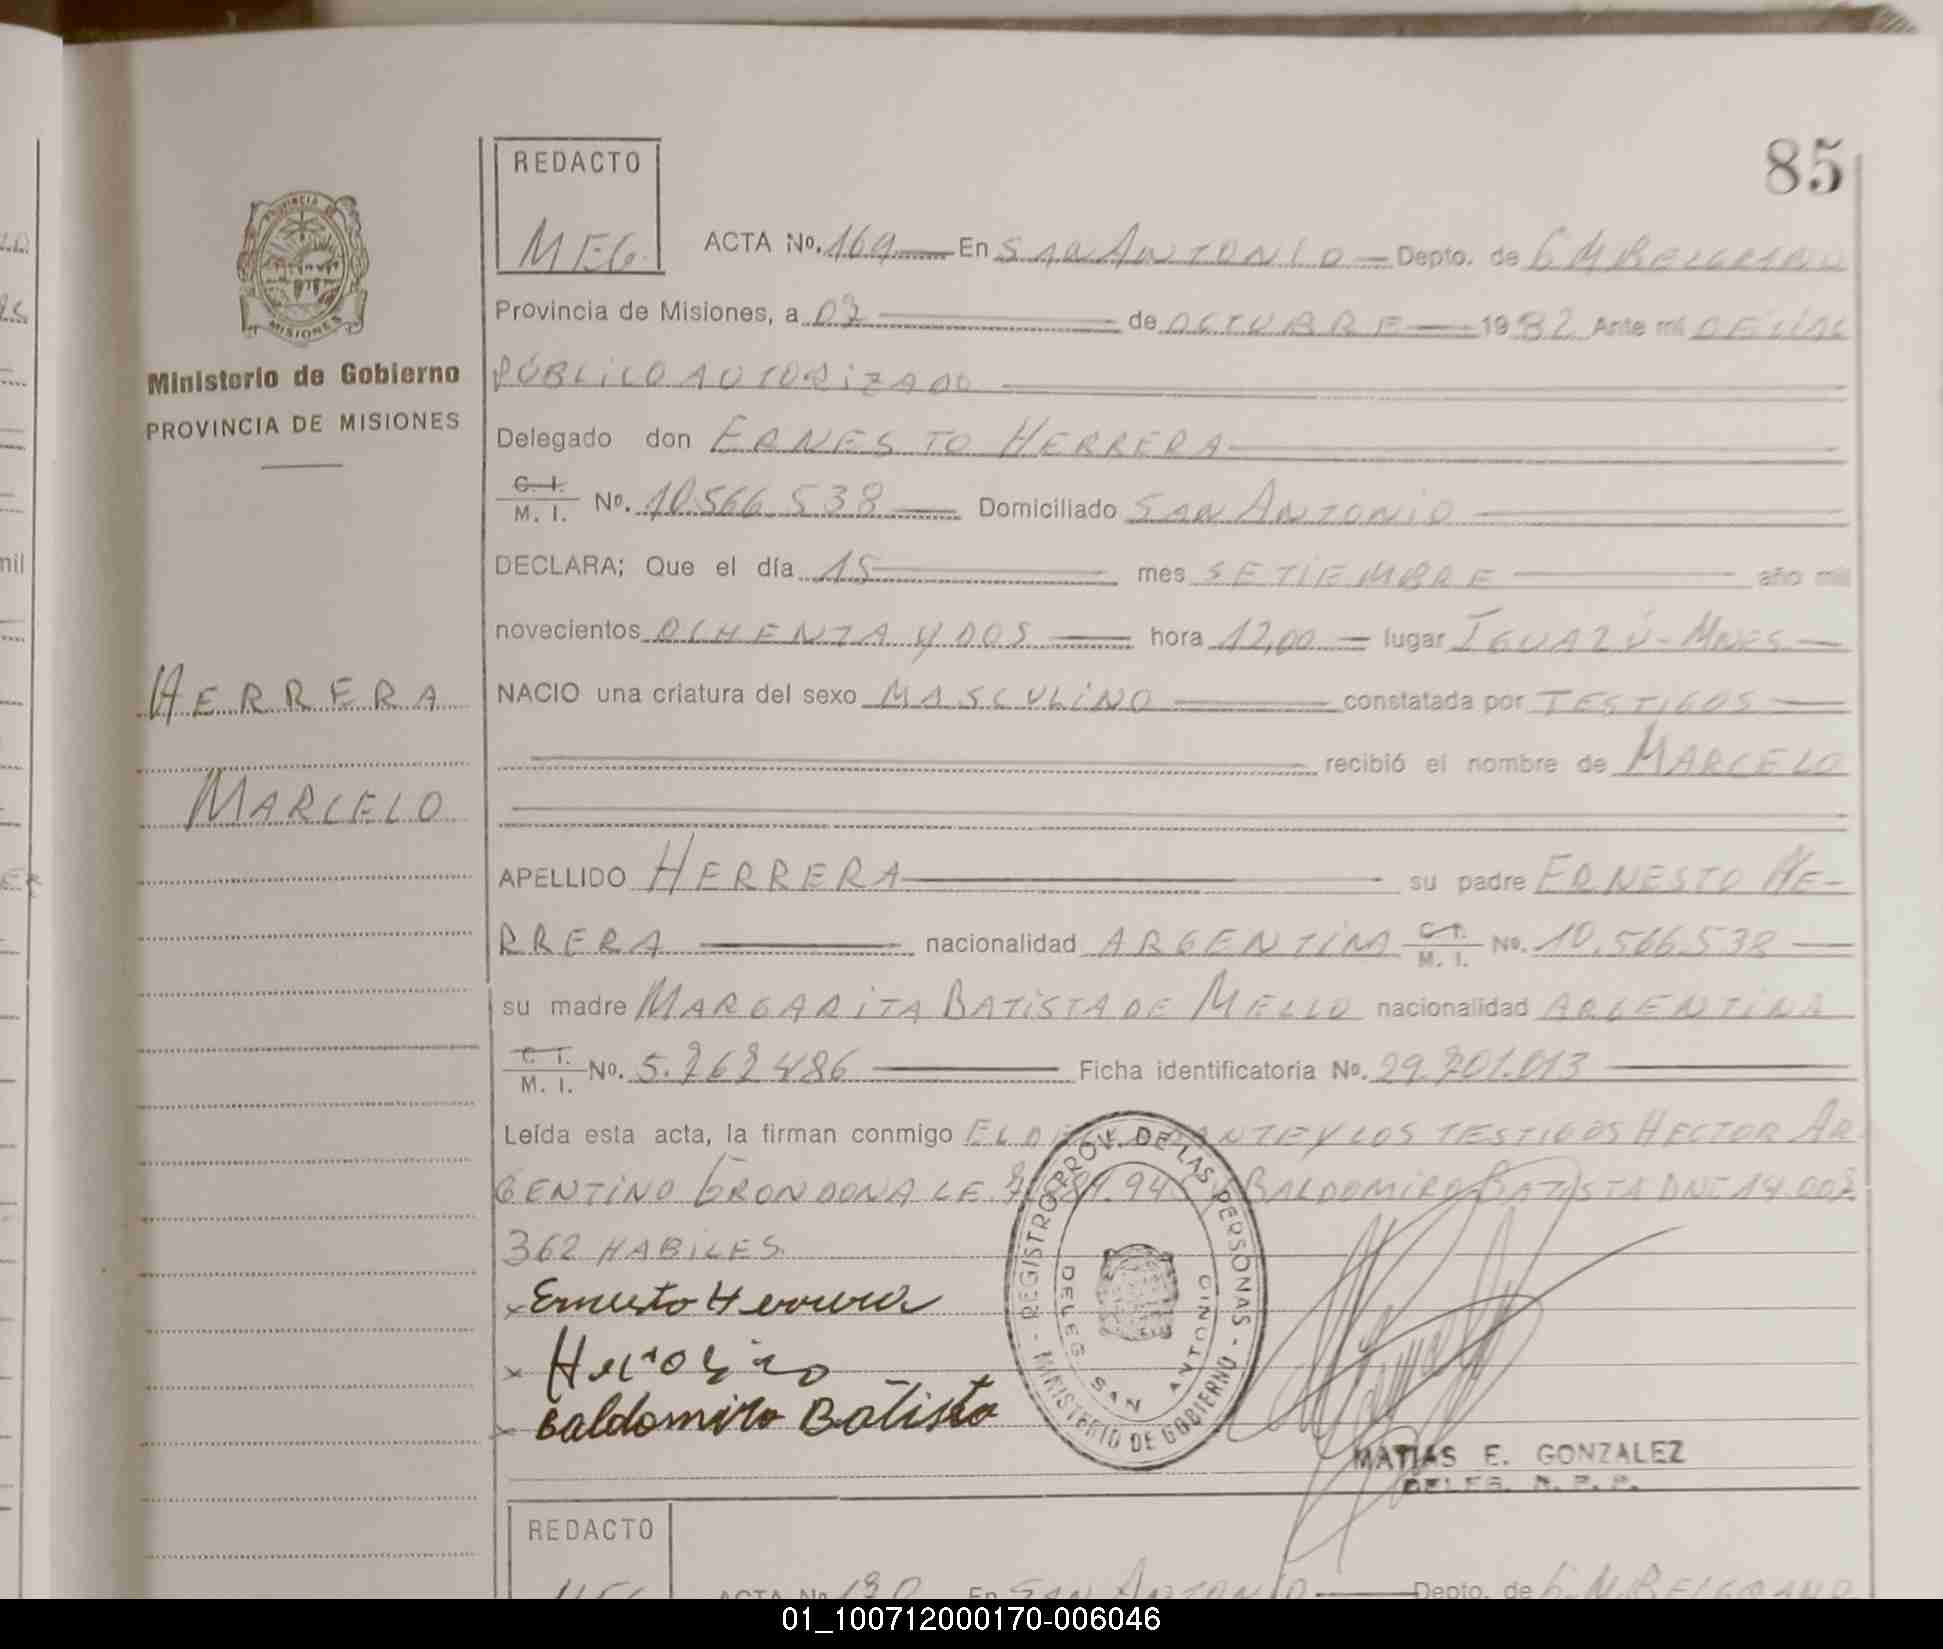 85
REDACTO
MEG.
ACTA No. 169 En SAN ANTONIO Depto. de G M BELGRANO
PROVINCIA DE MISIONES
Ministerio de Gobierno
PROVINCIA DE MISIONES
Provincia de Misiones, a 07 de OCTUBRE 1982 Ante mi OFICIAL
PÚBLICO AUTORIZADO
Delegado don ERNESTO HERRERA
C. I.
M. I. No. 10.566.538 Domiciliado SAN ANTONIO
DECLARA; Que el día 15 mes SETIEMBRE año mil
novecientos OCHENTA Y DOS hora 12,00 lugar IGUAZÚ - MNES
HERRERA
MARCELO
NACIO una criatura del sexo MASCULINO constatada por TESTIGOS
recibió el nombre de MARCELO
APELLIDO HERRERA su padre ERNESTO HE-
RRERA nacionalidad ARGENTINA C. I.
M. I. No. 10.566.538
su madre MARGARITA BATISTA DE MELLO nacionalidad ARGENTINA
C. I.
M. I. No. 5.762486 Ficha identificatoria No. 29.701.013
Leída esta acta, la firman conmigo EL Y LOS TESTIGOS HECTOR AR
GENTINO GRONDONA LE BALDOMIRO BATISTA DNI 14.007
362 HABILES
REGISTRO PROV. DE LAS PERSONAS - MINISTERIO DE GOBIERNO -
DELEG SAN ANTONIO
x Ernesto Herrera
x
x Baldomiro Batista
MATIAS E. GONZALEZ
DELEG. R. P. P.
REDACTO
ACTA No. 170 En SAN ANTONIO Depto. de G. M. BELGRANO
01_100712000170-006046